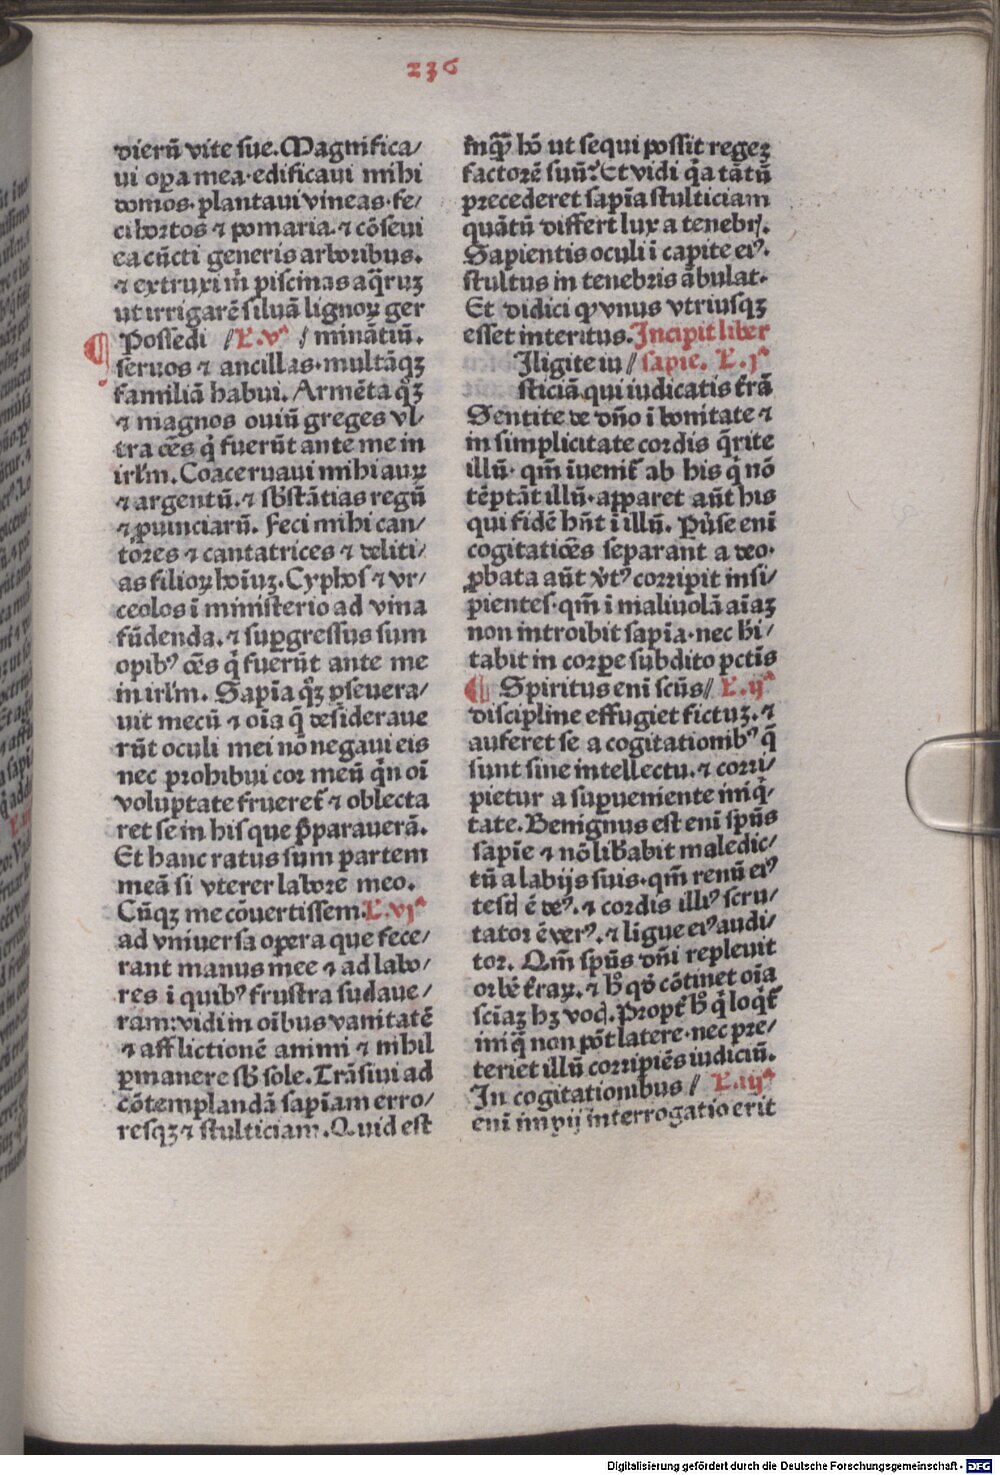 236
dierū vite sue. Magnifica/
ui oꝑa mea· edificaui mihi
domos· plantaui vineas· fe/
ci hortos ⁊ pomaria. ⁊ cōseui
ea cūcti generis arboribus.
⁊ extruxi m̄ piscinas aq̄ruꝫ
ut irrigarē siluā lignoꝝ ger
Possedi // L. vᵃ // minātiū.
seruos ⁊ ancillas· multāqꝫ
familiā habui. Armēta qͦꝫ
⁊ magnos ouiū greges vl/
tra oēs q̇ fuerūt ante me in
irl'm. Coaceruaui mihi auꝝ
⁊ argentū. ⁊ sb̄stātias regū
⁊ ꝓuinciarū. Feci mihi can/
tores ⁊ cantatrices ⁊ deliti/
as filioꝝ hoīuꝫ. Cyphos ⁊ vr/
ceolos ī ministerio ad vina
fūdenda. ⁊ suꝑgressus sum
opibꝰ oēs q̇ fuerūt ante me
in irl'm. Sapīa qͦꝫ ꝑseuera/
uit mecū ⁊ oīa q̄ desideraue
rūt oculi mei nō negaui eis
nec prohibui cor meū q̇n oī
voluptate frueret̄ ⁊ oblecta
ret se in his que p̄parauerā.
Et hanc ratus sum partem
meā si vterer labore meo.
Cūqꝫ me cōuertissem. L. vjᵃ
ad vniuersa opera que fece/
rant manus mee ⁊ ad labo/
res ī quibꝰ frustra sudaue/
ram: vidi in oībus vanitatē
⁊ afflictionē animi ⁊ nihil
ꝑmanere sb̄ sole. Trāsiui ad
cōtemplandā sapīam erro/
resqꝫ ⁊ stulticiam. Quid est
inquā hō ut sequi possit regeꝫ
factorē suū? Et vidi q̇a tātū
precederet sapīa stulticiam
quātū differt lux a tenebrꝭ.
Sapientis oculi ī capite eiꝰ.
stultus in tenebris ābulat·
Et didici ꝙ vnus vtriusqꝫ
esset interitus. Incipit liber
Iligite iu // sapīe. L. jᵃ
sticiā qui iudicatis t̄rā
Sentite de dn̄o ī bonitate ⁊
in simplicitate cordis q̄rite
illū· qm̄ īuenit̄ ab his q̇ nō
tēptāt illū· apparet aūt his
qui fidē hn̄t ī illū. Puͥse enī
cogitatiōes separant a deo·
ꝓbata aūt v̇tꝰ corripit insi/
pientes· qm̄ ī maliuolā aīaꝫ
non introibit sapīa· nec hī/
tabit in corꝑe subdito pctīs
Spiritus enī scūs // L. ijᵃ
discipline effugiet fictuꝫ. ⁊
auferet se a cogitationibꝰ q̄
sunt sine intellectu. ⁊ corri/
pietur a suꝑueniente iniq̇/
tate. Benignus est enī spūs
sapīe ⁊ nō lib̄abit maledic/
tū a labijs suis· qm̄ renū eiꝰ
testꝭ ē deꝰ. ⁊ cordis illiꝰ scru/
tator ē verꝰ. ⁊ ligue eiꝰ audi/
tor. Qm̄ spūs dn̄i repleuit
orbē t̄raꝝ. ⁊ hͦ qd̓ cōtinet oīa
scīaꝫ hꝫ vocꝭ. Propt̄ hͦ q̇ loq̇t̄
iniq̄ non pōt latere· nec pre/
teriet illū corripiēs iudiciū.
In cogitationibus // L. iijᵃ
enī impij interrogatio erit
Digitalisierung gefördert durch die Deutsche Forschungsgemeinschaft - DFG